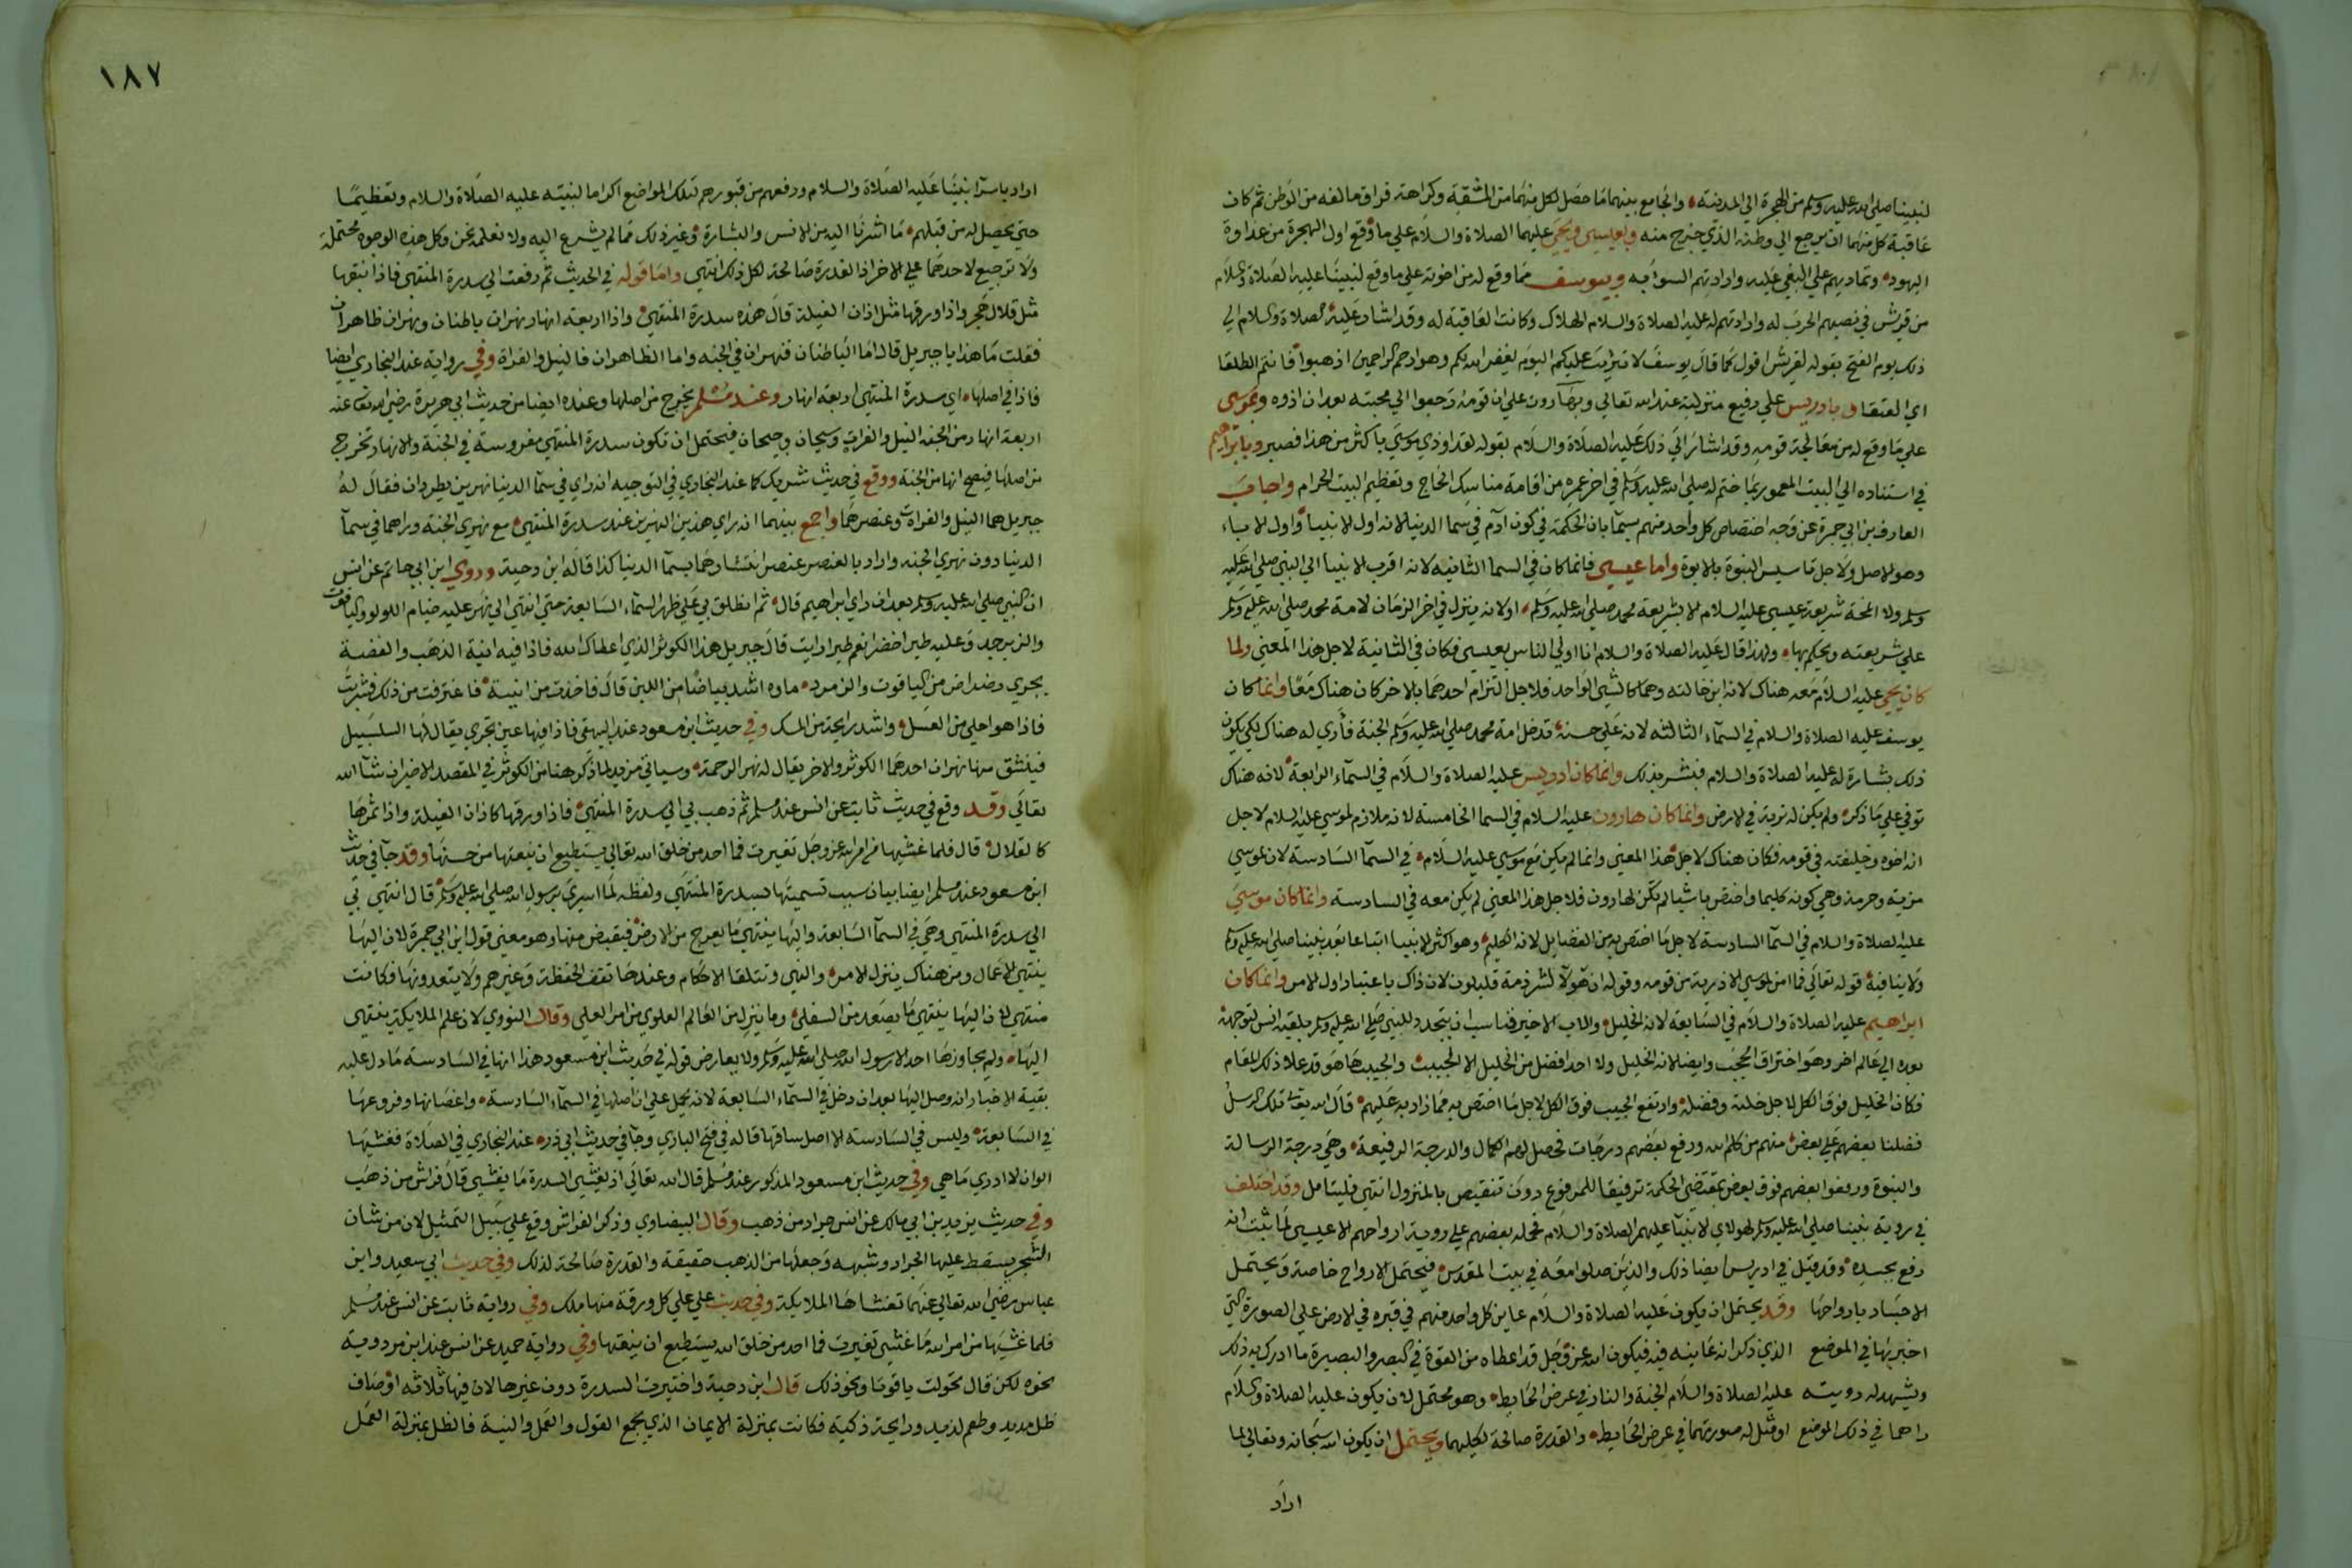 لنبينا صلى الله عليه وسلم من الهجرة الي المدينة والجامع بينهما ما حصل لكل منهما من المشقة وكراهة فراق ما الفه من الوطن ثم كان
عاقبة كل منهما ان يرجع الي وطنه الذي خرج منه وبعيسى ويحيى عليهما الصلاة والسلام علي ما وقع اول الهجرة من عداوة
اليهود وتماديهم علي البغي عليه وارادتهم السوا به وبيوسف مما وقع له من اخوته علي ما وقع لنبينا عليه الصلاة والسلام
من قريش في نصبهم الحرب له وارادتهم له عليه الصلاة والسلام الهلاك وكانت العاقبة له وقد اشار عليه الصلاة والسلام الي
ذلك يوم الفتح بقوله لقريش اقول كما قال يوسف لا تثريب عليكم اليوم يغفر الله لكم وهو ارحم الراحمين اذهبوا فانتم الطلقا
اي العتقا وبادريس علي رفيع منزلته عند الله تعالي وبهارون علي ان قومه رجعوا الي محبته بعد ان اذوه وبموسى
علي ما وقع له من معالجة قومه وقد اشار الي ذلك عليه الصلاة والسلام بقوله لقد اوذي موسي باكثر من هذا فصبر وبابراهيم
في استناده الي البيت المعمور بما ختم له صلى الله عليه وسلم في اخر عمره من اقامة مناسك الحاج وتعظيم البيت الحرام واجاب
العارف بن ابي جمرة عن وجه اختصاص كل واحد منهم بسمآ بان الحكمة في كون آدم في سما الدنيا لانه اول الانبيا واول الاباء
وهو الاصل ولاجل تاسيس النبوة بالابوة واما عيسى فانما كان في السما الثانيه لانه اقرب الانبيا الي النبي صلى الله عليه
وسلم ولا انمحت شريعة عيسى عليه السلام الا بشريعة محمد صلى الله عليه وسلم او لانه ينزل في اخر الزمان لامة محمد صلى الله عليه وسلم
علي شريعته ويحكم بها ولهذا قال عليه الصلاة والسلام انا اولي الناس بعيسى فكان في الثانية لاجل هذا المعني ولما
كان يحيى عليه السلام معه هناك لانه ابن خالته وهما كالشي الواحد فلاجل التزام احدهما بالاخر كان هناك معًا وانما كان
يوسف عليه الصلاة والسلام في السمآء الثالثه لان علي حسنه تدخل امة محمد صلى الله عليه وسلم الجنة فأري له هناك لكي يكون
ذلك بشارة له عليه الصلاة والسلام فبشر بذلك وانما كان ادريس عليه الصلاة والسلام في السمآء الرابعة لانه هناك
توفي علي ما ذكر ولم يكن له تربة في الارض وانما كان هارون عليه السلام في السما الخامسة لانه ملازم لموسي عليه السلام لاجل
انه اخوه وخليفته في قومه فكان هناك لاجل هذا المعني وانما لم يكن مع موسي عليه السلام في السمآ السادسة لان لموسي
مزية وحرمة وهي كونه كليما واختص باشيا لم تكن لهارون فلاجل هذا المعني لم يكن معه في السادسة وانما كان موسي
عليه الصلاة والسلام في السمآ السادسة لاجل ما اختص به من الفضايل لانه الكليم وهو اكثر الانبيا اتباعا بعد نبينا صلى الله عليه وسلم
ولا ينافيه قوله تعالي فما امن لموسي الا ذرية من قومه وقوله ان هؤلا لشرذمة قليلون لان ذاك باعتبار اول الامر وانما كان
ابراهيم عليه الصلاة والسلام في السابعه لانه الخليل والاب الاخير فناسب ان يتجدد للنبي صلى الله عليه وسلم بلقيه انس لتوجهه
بعده الي عالم اخر وهو اختراق الحجب وايضا لانه الخليل ولا احد افضل من الخليل الا الحبيب والحبيب ها هو قد علا ذلك المقام
فكان الخليل فوق الكل لاجل خلته وفضله وارتفع الحبيب فوق الكل لاجل ما اختص به مما زاد به عليهم قال الله تعالى تلك الرسل
فضلنا بعضهم علي بعض منهم من كلم الله ورفع بعضهم درجات فحصل لهم الكمال والدرجة الرفيعة وهي درجة الرسالة
والنبوة ورفعوا بعضهم فوق بعض بمقتضي الحكمة ترفيعًا للمرفوع دون تنقيص بالمنزول انتهي فليتامل وقد اختلف
في روية نبينا صلى الله عليه وسلم لهولاي الانبيآ عليهم الصلاة والسلام فحمله بعضهم علي روية ارواحهم الا عيسى لما ثبت انه
رفع بجسده وقد قيل في ادريس ايضا ذلك والذين صلوا معه في بيت المقدس فيحتمل الارواح خاصة ويحتمل
الاجساد بارواحها وقد يحتمل ان يكون عليه الصلاة والسلام عاين كل واحد منهم في قبره في الارض علي الصورة التي
اخبر بها في الموضع الذي ذكر انه عاينه فيه فيكون الله عز وجل قد اعطاه من القوة في البصر والبصيرة ما ادرك به ذلك
ويشهد له رويته عليه الصلاة والسلام الجنة والنار في عرض الحايط وهو محتمل لان يكون عليه الصلاة والسلام
راهما في ذلك الموضع او مثل له صورتهما في عرض الحايط والقدرة صالحة لكليهما ويحتمل ان يكون الله سبحانه وتعالي لما
اراد
١٨٧
اراد باسرآ نبينا عليه الصلاة والسلام ورفعهم من قبورهم لتلك المواضع اكراما لنبيه عليه الصلاة والسلام وتعظيمًا
حتي يحصل له من قبلهم ما اشرنا اليه من الانس والبشارة وغير ذلك مما لم يشرع اليه ولا نعلمه نحن وكل هذه الوجوه محتملة
ولا ترجيح لاحدهما علي الاخر اذ القدرة صالحة لكل ذلك انتهي واما قوله في الحديث ثم رفعت الي سدرة المنتهي فاذا نبقها
مثل قلال هجر واذا ورقها مثل اذان الفيلة قال هذه سدرة المنتهي واذا اربعة انهار نهران باطنان ونهران ظاهران
فقلت ما هذا يا جبريل قال اما الباطنان فنهران في الجنه واما الظاهران فالنيل والفراة وفي رواية عند البخاري ايضا
فاذا في اصلها اي سدرة المنتهي اربعة انهار وعند مسلم يخرج من اصلها وعنده ايضا من حديث ابي هريرة رضي الله تعالى عنه
اربعة انهار من الجنه النيل والفرات وسيحان وجيحان فيحتمل ان تكون سدرة المنتهي مغروسة في الجنة والانهار تخرج
من اصلها فيصح انها من الجنة ووقع في حديث شريك كما عند البخاري في التوحيد انه راي في سمآ الدنيا نهرين يطردان فقال له
جبريل هما النيل والفرات وعنصرهما واجمع بينهما انه راي هذين النهرين عند سدرة المنتهي مع نهري الجنة وراهما في سمآ
الدنيا دون نهري الجنه واراد بالعنصر عنصر انتشارهما بسمآ الدنيا كذا قاله ابن دحية وروي ابن ابي حاتم عن انس
ان النبي صلى الله عليه وسلم بعد ان راي ابراهيم قال ثم انطلق بي علي ظهر السمآء السابعة حتي انتهي الي نهر عليه خيام اللولو والياقوت
والزبرجد وعليه طير اخضر انعم طير رايت قال جبريل هذا الكوثر الذي اعطاك الله فاذا فيه انية الذهب والفضة
يجري رضراض من الياقوت والزمرد ماوه اشد بياضًا من اللبن قال فاخذت من انيته فاغترفت من ذلك فشربت
فاذا هو احلي من العسل واشد رايحة من المسك وفي حديث ابن مسعود عند البيهقي فاذا فيها عين تجري يقال لها السلسبيل
فينشق منها نهران احدهما الكوثر والاخر يقال له نهر الرحمة وسياتي مزيد لما ذكر هنا من الكوثر في المقصد الاخير ان شآ الله
تعالي وقد وقع في حديث ثابت عن انس عند مسلم ثم ذهب بي الي سدرة المنتهي فاذا ورقها كاذان الفيلة واذا ثمرها
كالقلال قال فلما غشيها من امر الله عز وجل تغيرت فما احد من خلق الله تعالي يستطيع ان ينعتها من حسنها وقد جآ في حديث
ابن مسعود عند مسلم ايضا بيان سبب تسميتها بسدرة المنتهي ولفظه لما اسري برسول الله صلى الله عليه وسلم قال انتهي بي
الي سدرة المنتهي وهي في السمآ السابعة واليها ينتهي ما يعرج من الارض فيقبض منها وهو معني قول ابن ابي جمرة لان اليها
ينتهي الاعمال ومن هناك ينزل الامر والنهي وتتلقا الاحكام وعندها تقف الحفظة وغيرهم ولا يتعدونها فكانت
منتهي لان اليها ينتهي ما يصعد من السفلي وما ينزل من العالم العلوي من امر العلي وقال النووي لان علم الملايكة ينتهي
اليها ولم يجاوزها احد الا رسول الله صلى الله عليه وسلم ولا يعارض قوله في حديث ابن مسعود هذا انها في السادسة ما دل عليه
بقية الاخبار انه وصل اليها بعد ان دخل في السمآء السابعة لانه يحمل علي ان اصلها في السمآء السادسة واغصانها وفروعها
في السابعة وليس في السادسة الا اصل ساقها قاله في فتح الباري وجآ في حديث ابي ذر عند البخاري في الصلاة فغشيها
الوان لا ادري ما هي وفي حديث ابن مسعود المذكور عند مسلم قال الله تعالي اذ يغشي السدرة ما يغشي قال فراش من ذهب
وفي حديث يزيد بن ابي مالك عن انس جراد من ذهب وقال البيضاوي وذكر الفراش وقع علي سبيل التمثيل لان من شان
الشجر يسقط عليها الجراد وشبهه وجعلها من الذهب حقيقة والقدرة صالحة لذلك وفي حديث ابي سعيد وابن
عباس رضي الله تعالي عنهما تغشاها الملايكة وفي حديث علي علي كل ورقة منها ملك وفي رواية ثابت عن انس عند مسلم
فلما غشيها من امر الله ما غشي تغيرت فما احد من خلق الله يستطيع ان ينعتها وفي رواية حميد عن انس عند ابن مردوية
نحوه لكن قال تحولت ياقوتا ونحو ذلك قال ابن دحية واختيرت السدرة دون غيرها لان فيها ثلاثه اوصاف
ظل مديد وطعم لذيذ ورايحة زكية فكانت بمنزلة الايمان الذي يجمع القول والعمل والنية فالظل بمنزلة العمل